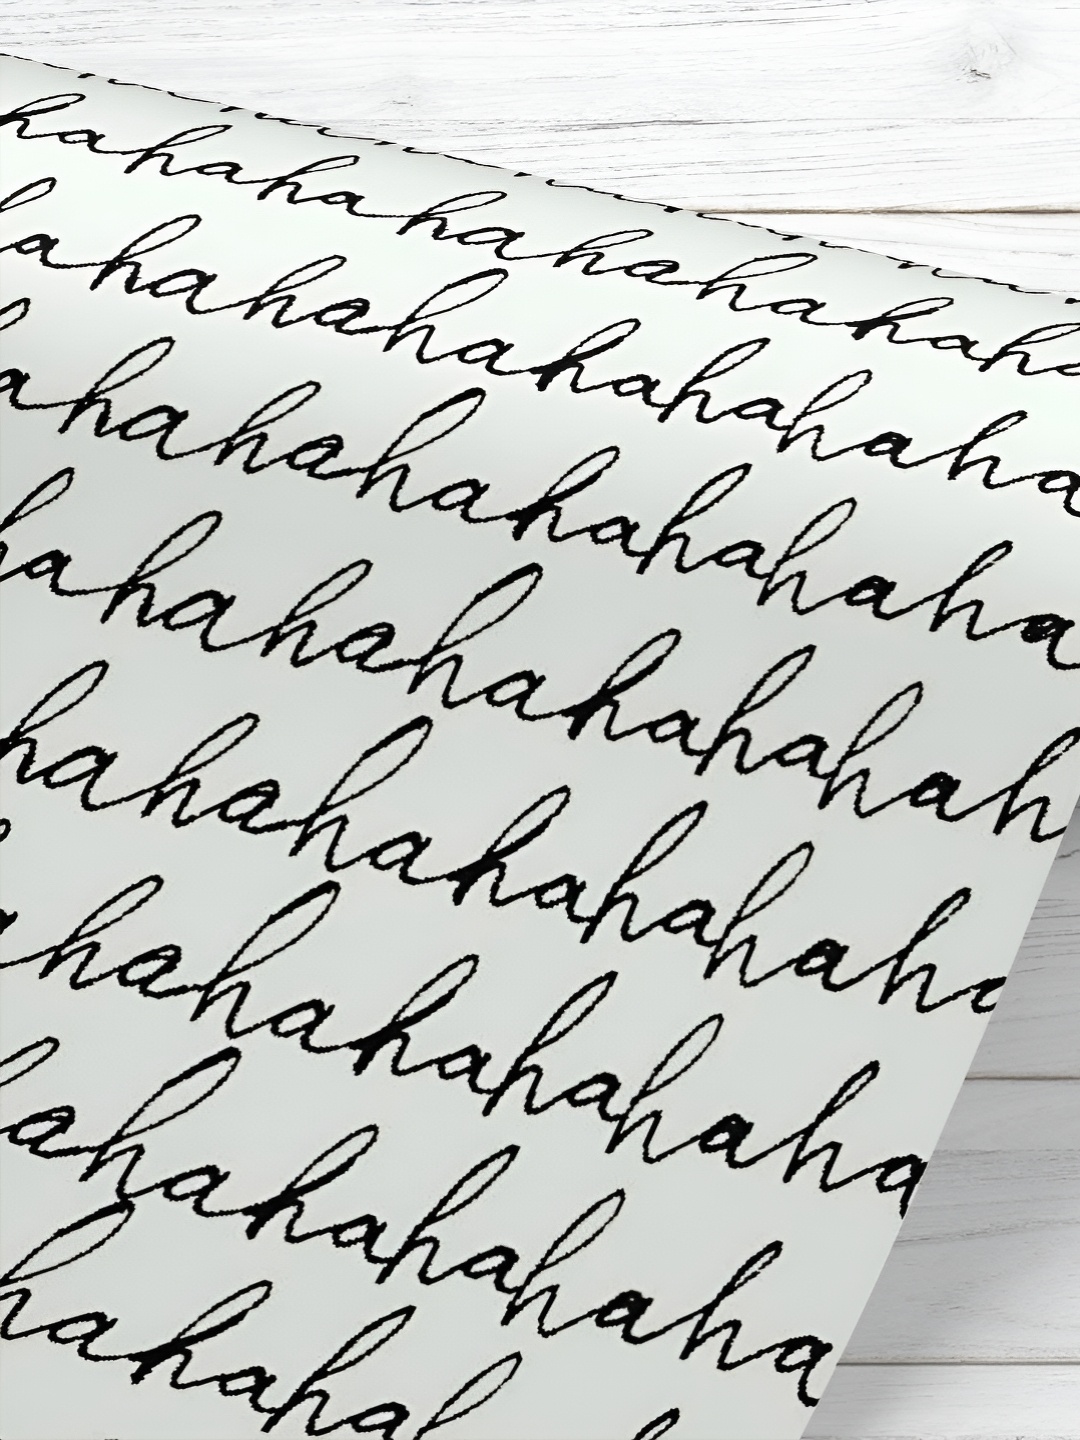 hahahahahahahaha
hahahahahahahaha
ahahahahahahaha
hahahahahahahah
hahahahahahaha
ahahahahahaha
hahahahahaha
hahahah